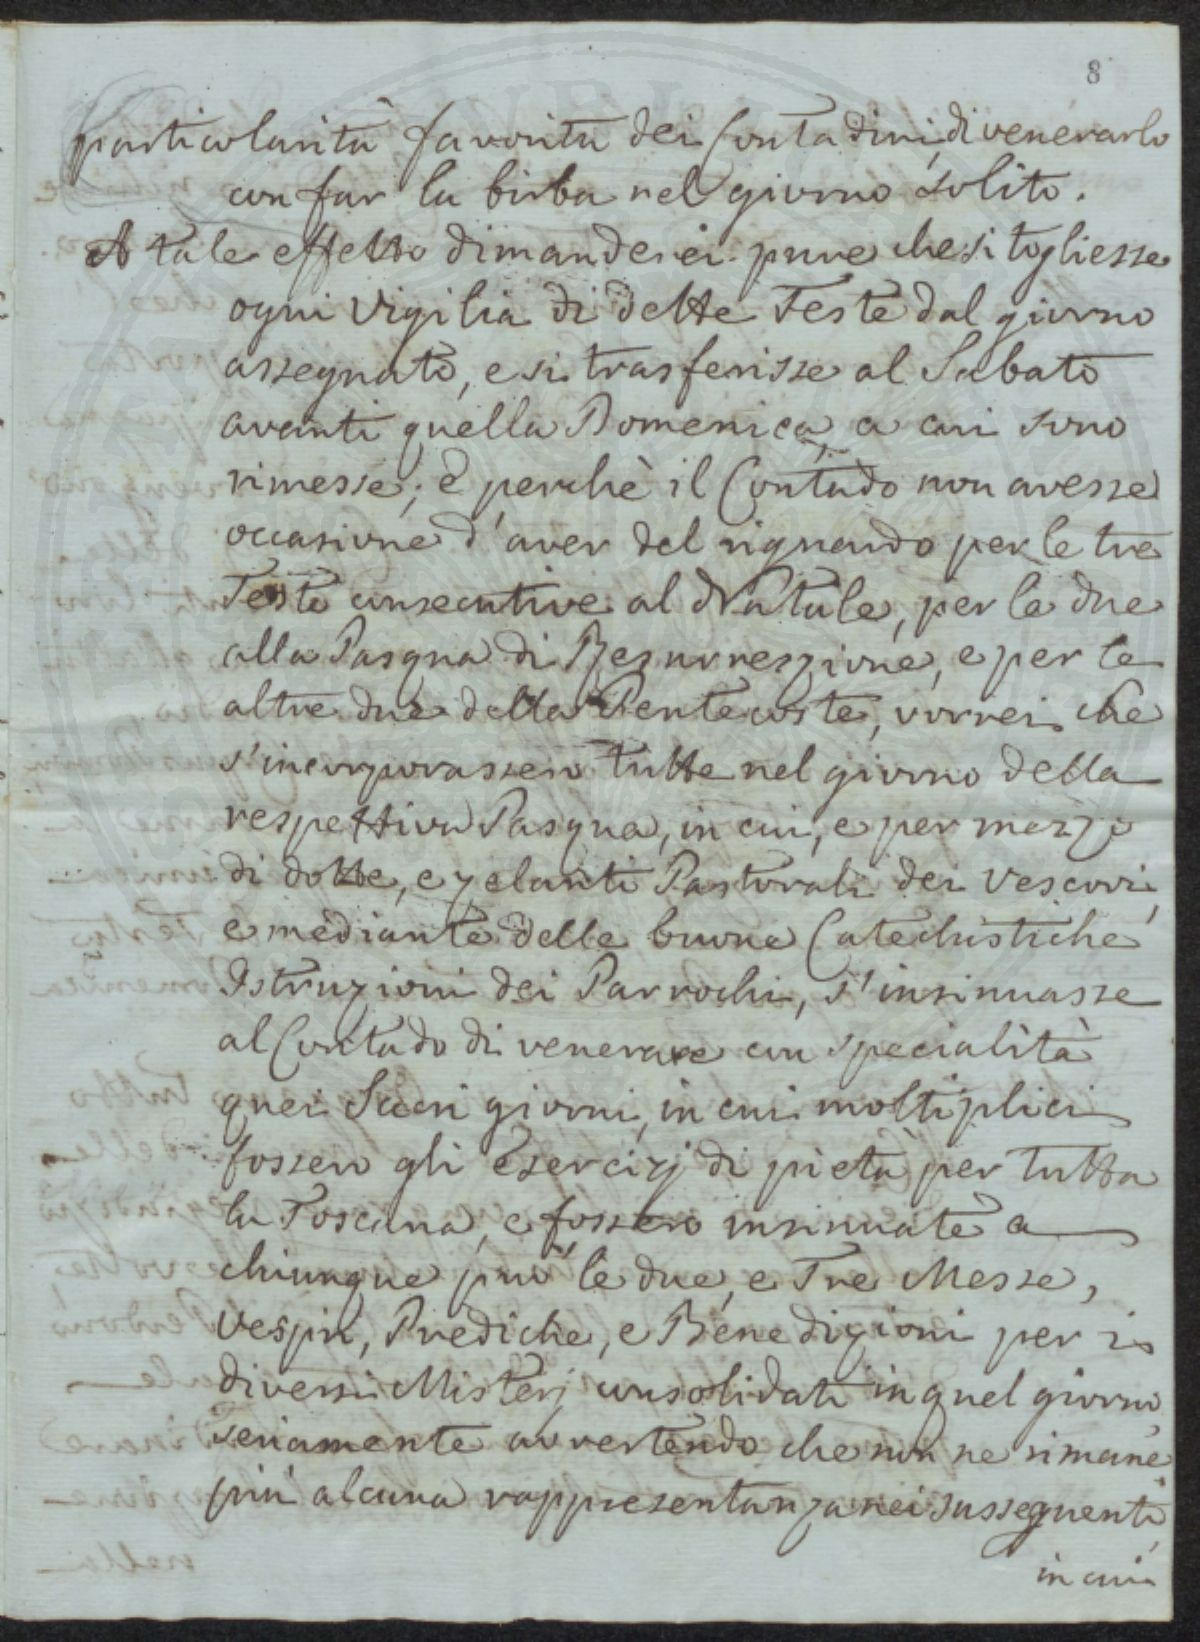 8
particolarità favorita dei Contadini, di venerarlo
con far la birba nel giorno solito.
A tale effetto dimanderei pure che si togliesse
ogni Vigilia di dette Feste dal giorno
assegnato, e si trasferisse al Sabato
avanti quella Domenica, a cui sono
rimesse; e perchè il Contado non avesse
occasione d'aver del riguardo per le tre
Feste consecutive al Natale, per le due
alla Pasqua di Resurreszione, e per le
altre due della Pentecoste, vorrei che
s'incorporassero tutte nel giorno della
respettiva Pasqua, in cui, e per mezzo
di dotte, e zelanti Pastorali dei Vescovi,
e mediante delle buone Catechistiche
Istruzioni dei Parrochi, s'insinuasse
al Contado di venerare con specialità
quei Sacri giorni, in cui moltiplici
fossero gli Esercizj di pietà per tutta
la Toscana, e fossero insinuate a
chiunque può le due, e Tre Messe,
Vespri, Prediche, e Benedizioni per i
diversi Misterj consolidati in quel giorno,
seriamente avvertendo che non ne rimane
più alcuna rappresentanza nei susseguenti,
in cui